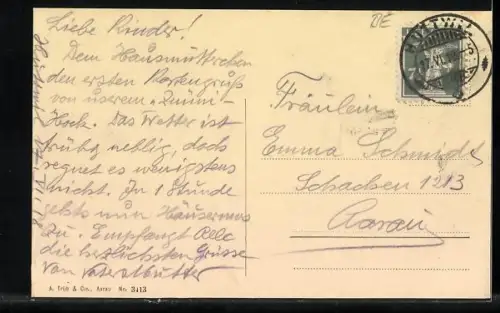 Liebe Kinder!
Dem Hausmütterchen
den ersten Kartengruß
von unserem "Znüni-
Hock. Das Wetter ist
trüb, neblig, doch
regnet es wenigstens
nicht. In 1 Stunde
gehts nun
zu. Empfangt Alle
die herzlichsten Grüsse
von
BE
HUTTWIL
Fräulein
Emma Schmidt
Schachen 1213
Aarau
A. Trüb & Cie., Aarau No. 3413